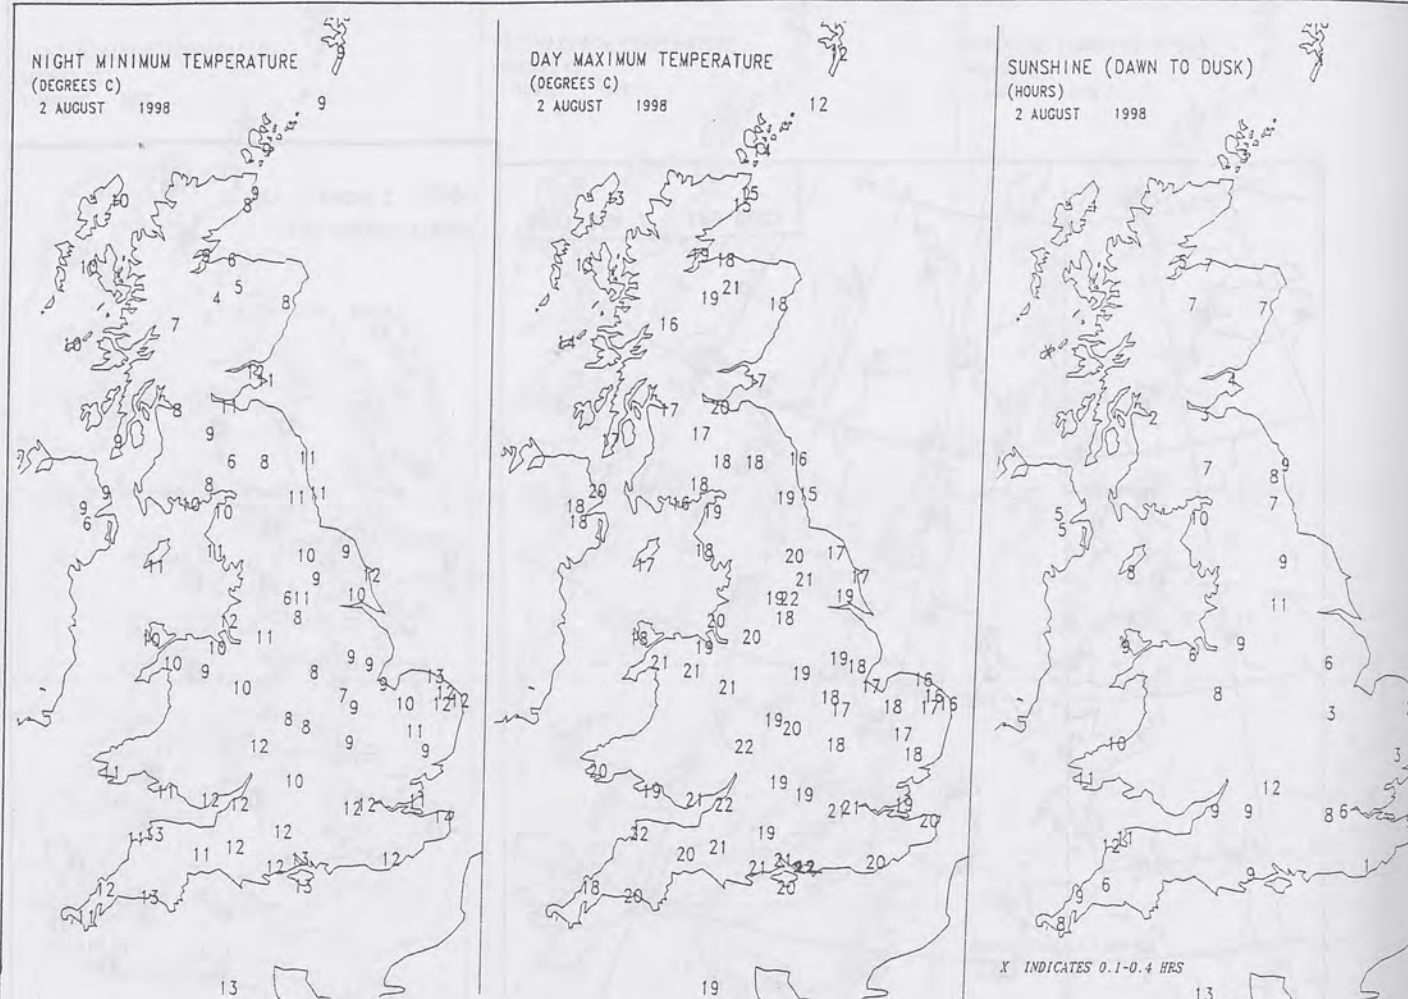 NIGHT MINIMUM TEMPERATURE
(DEGREES C)
2 AUGUST 1998
9
9
8
6
5
4
8
7
8
11
9
6
8
11
8
11
11
9
9
6
10
10
11
11
10
9
9
12
6 11
10
8
12
11
10
10
10
9
8
9
9
13
10
9
7
9
10
12
12
12
8
8
11
12
9
9
11
10
11
12
12
12
12
13
12
11
12
12
13
12
12
13
13
11
13
DAY MAXIMUM TEMPERATURE
(DEGREES C)
2 AUGUST 1998
12
12
13
15
15
18
21
19
18
16
17
20
17
17
18
18
16
18
20
18
18
16
19
19
15
18
17
20
17
21
17
19 22
19
18
20
20
18
19
21
21
19
19
18
21
17
16
18
17
18
16
17
16
19
20
17
22
18
18
20
19
19
19
21
22
21
21
19
20
22
19
20
21
21
21
22
20
18
20
20
19
SUNSHINE (DAWN TO DUSK)
(HOURS)
2 AUGUST 1998
4
7
7
7
X
4
2
3
7
9
8
7
10
5
5
9
8
11
9
9
6
6
8
3
10
11
3
12
9
9
8
6
12
11
9
1
6
9
8
X INDICATES 0.1-0.4 HRS
13